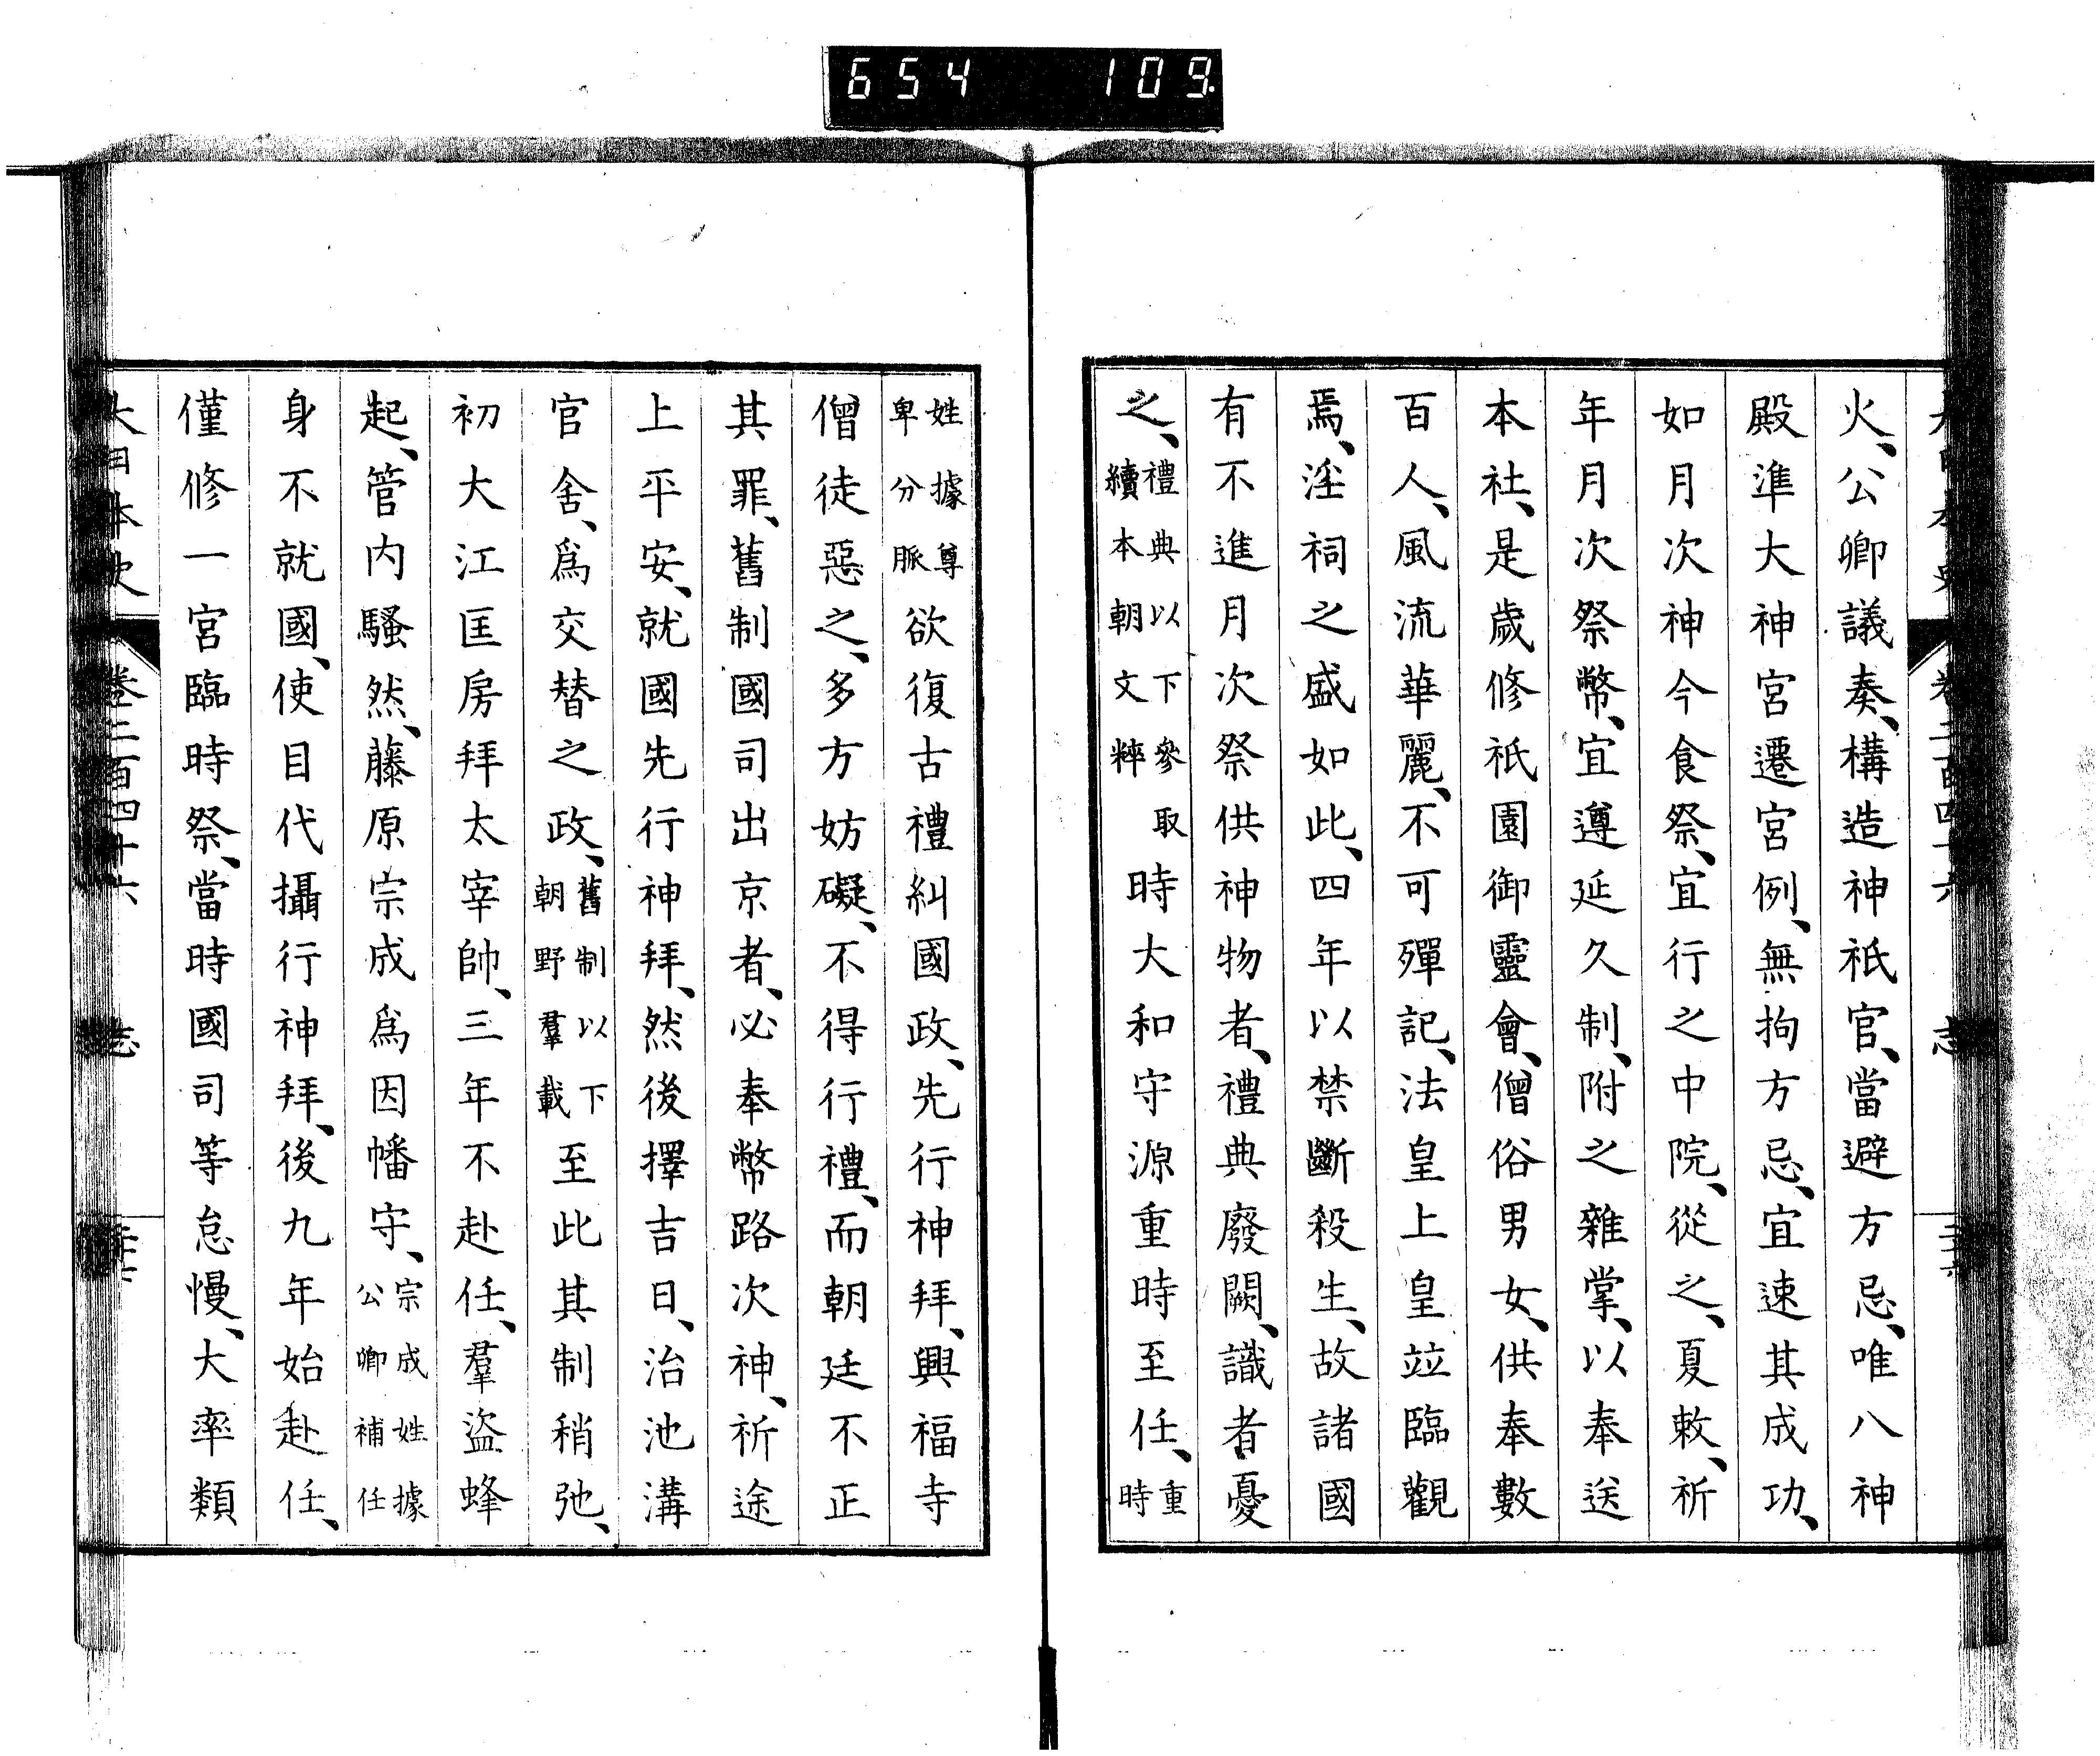 654 109
火、公卿議奏、構造神祇官、當避方忌、唯八神
殿準大神宮遷宮例、無拘方忌、宜速其成功、
如月次神今食祭、宜行之中院、從之、夏敕、祈
年月次祭幣、宜遵延久制、附之雜掌、以奉送
本社、是歲修祇園御靈會、僧俗男女、供奉數
百人、風流華麗、不可殫記、法皇上皇竝臨觀
焉、淫祠之盛如此、四年以禁斷殺生、故諸國
有不進月次祭供神物者、禮典廢闕、識者憂
之、禮典以下參取續本朝文粹時大和守源重時至任、重時
姓據尊卑分脈欲復古禮糾國政、先行神拜、興福寺
僧徒惡之、多方妨礙、不得行禮、而朝廷不正
其罪、舊制國司出京者、必奉幣路次神、祈途
上平安、就國先行神拜、然後擇吉日、治池溝
官舍、爲交替之政、舊制以下朝野羣載至此其制稍弛、
初大江匡房拜太宰帥、三年不赴任、羣盜蜂
起、管内騷然、藤原宗成爲因幡守、宗成姓據公卿補任
身不就國、使目代攝行神拜、後九年始赴任、
僅修一宮臨時祭、當時國司等怠慢、大率類
大日本史 卷二百四十六 志